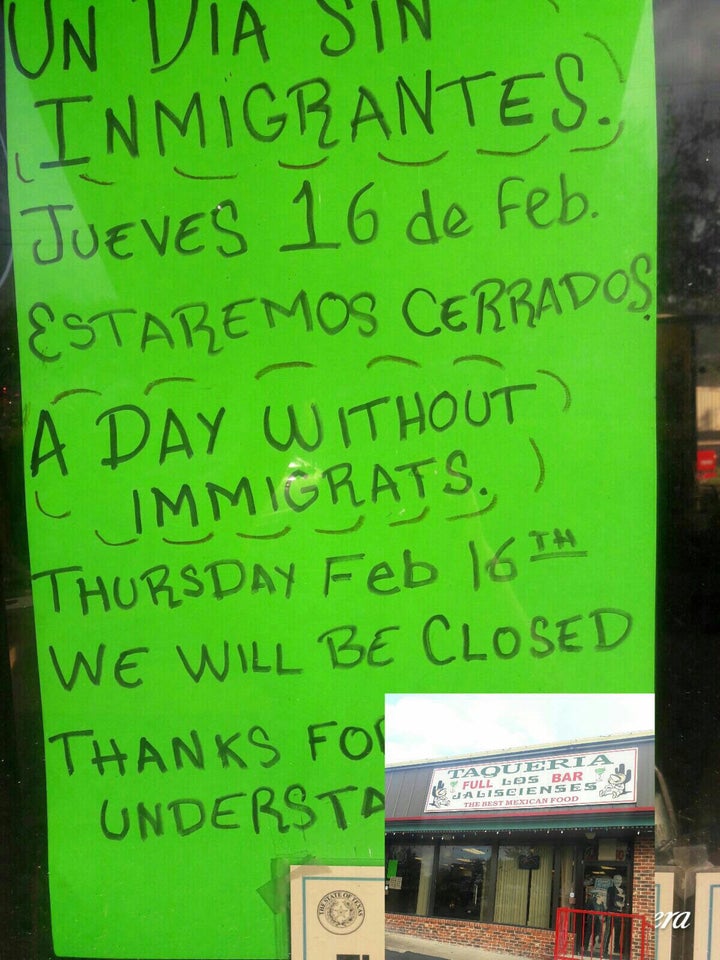 UN DIA SIN
INMIGRANTES.
JUEVES 16 de Feb.
ESTAREMOS CERRADOS.
A DAY WITHOUT
IMMIGRATS.
THURSDAY Feb 16TH
WE WILL BE CLOSED
THANKS FO
UNDERSTA
TAQUERIA
FULL LOS BAR
JALISCIENSES
THE BEST MEXICAN FOOD
THE STATE OF TEXAS
era